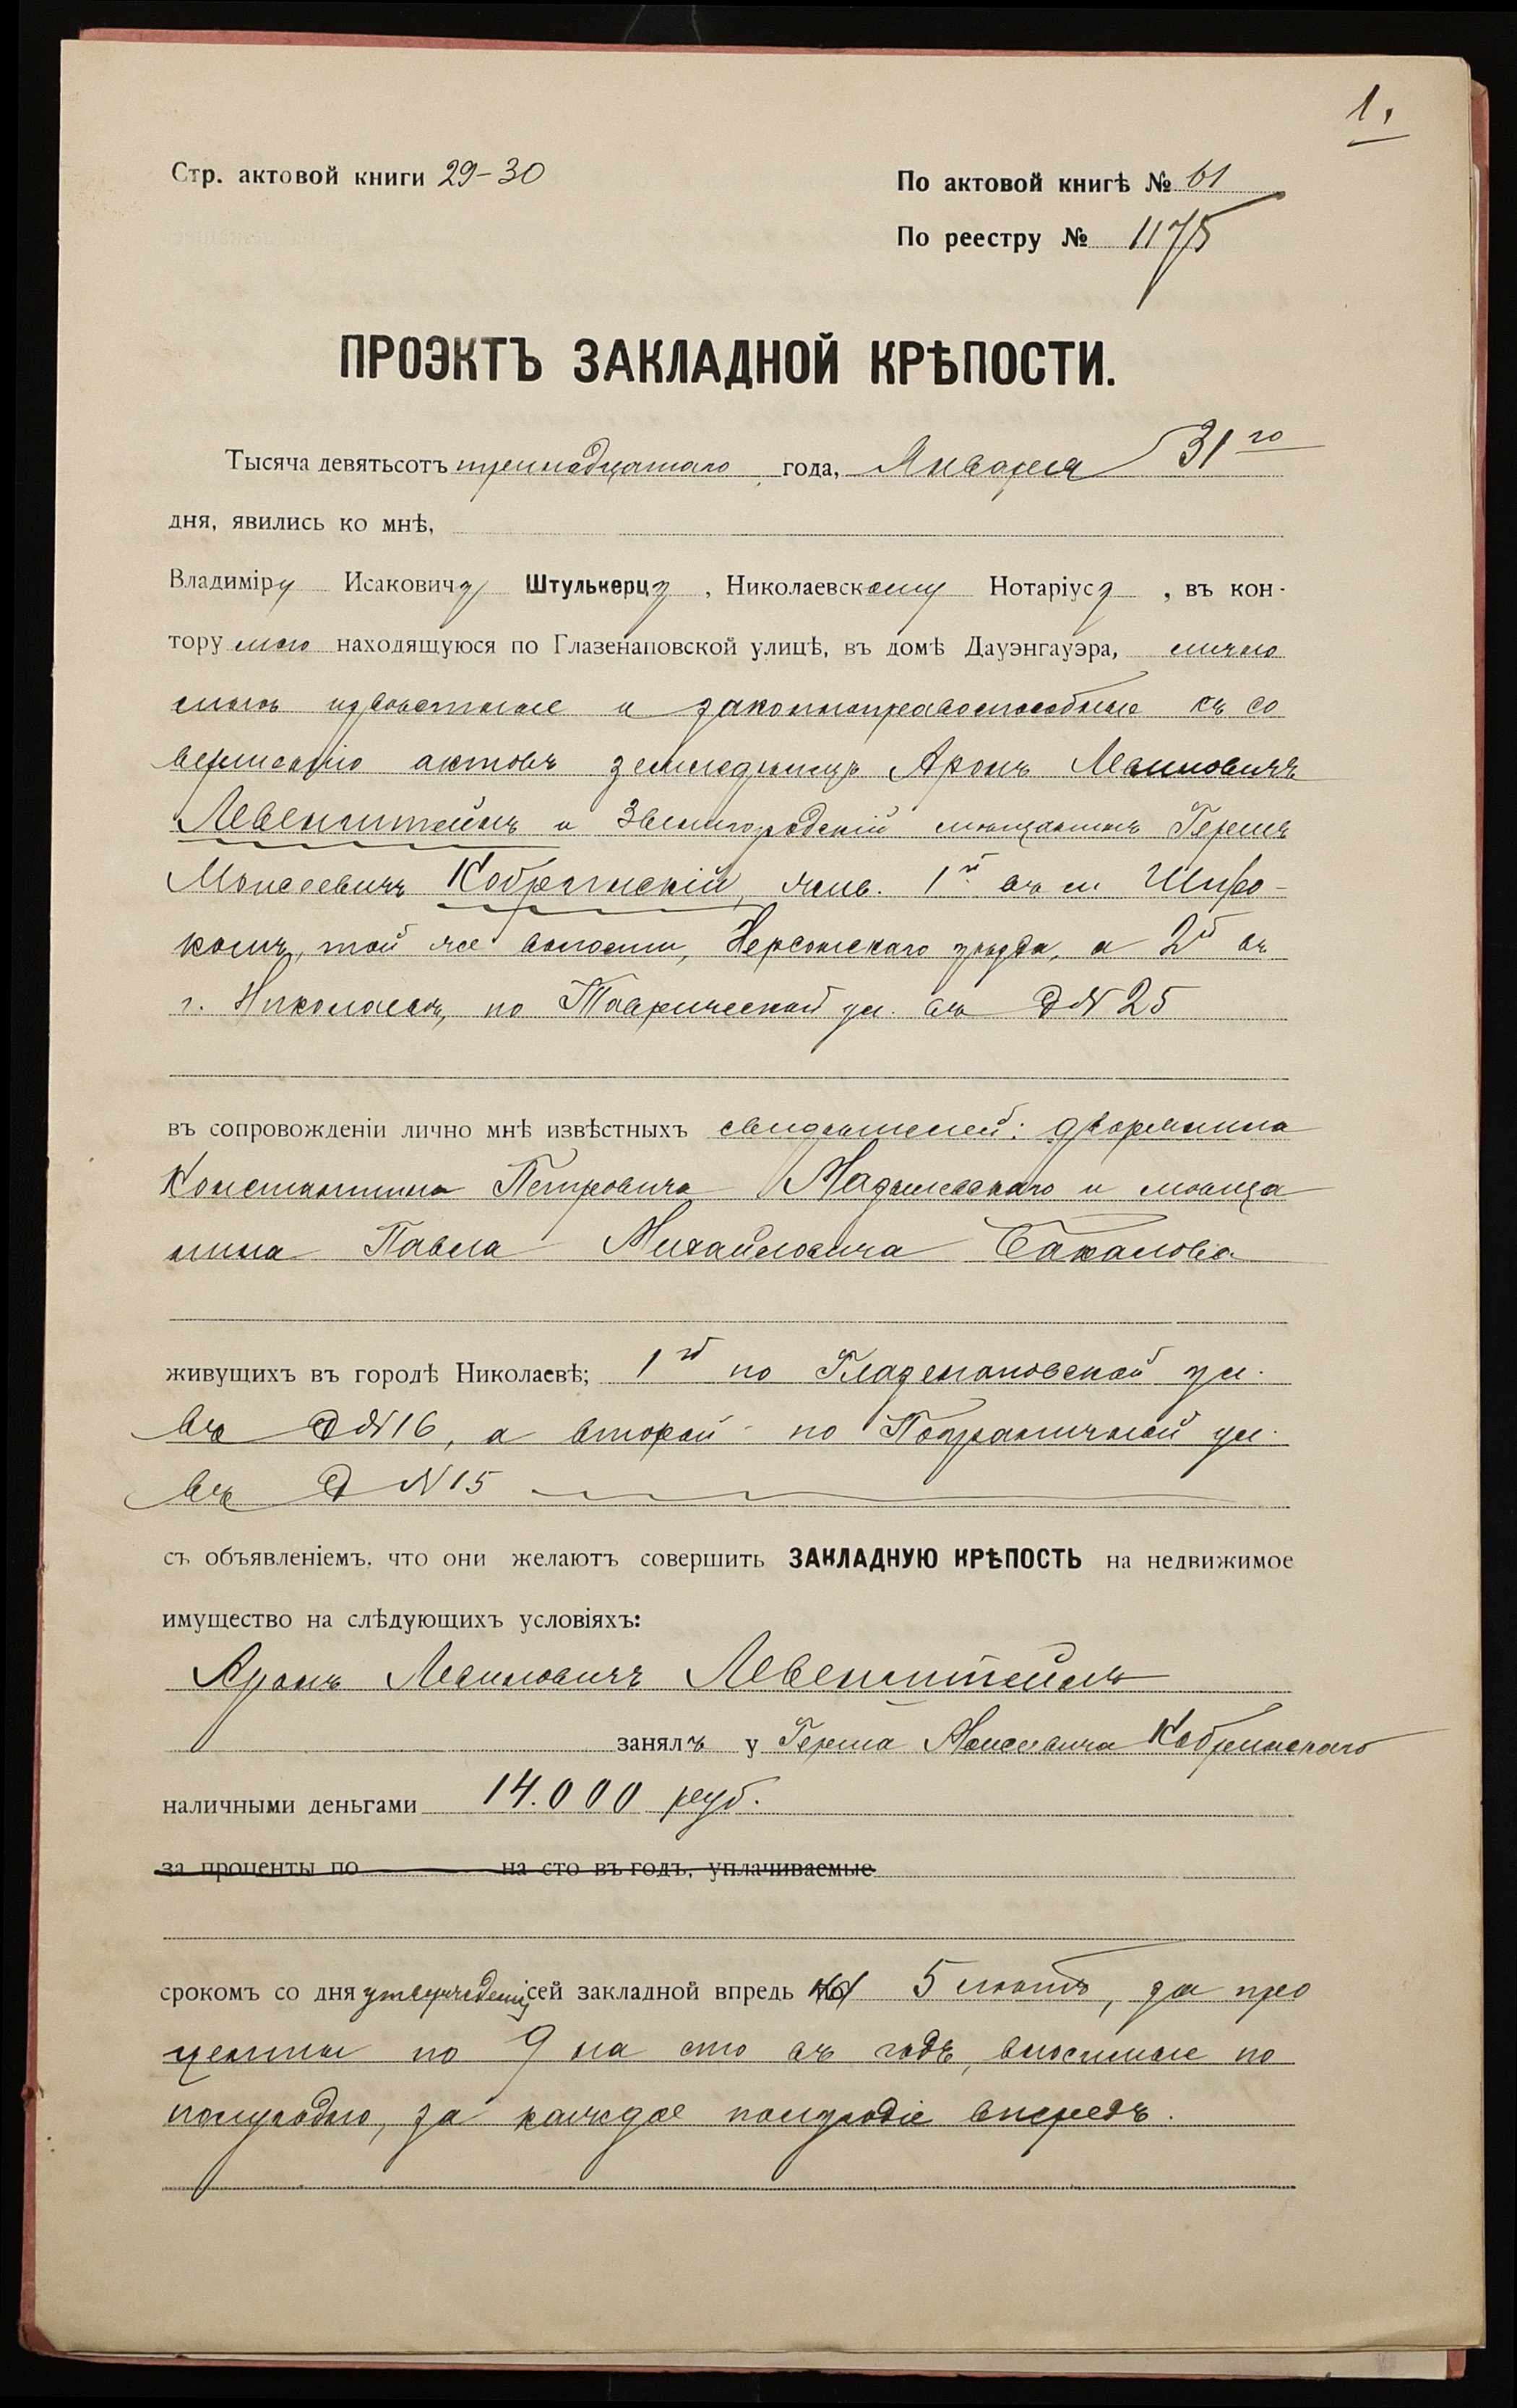 1.
Стр. актовой книги 29-30
По актовой книгѣ № 61
По реестру № 1175
ПРОЭКТЪ ЗАКЛАДНОЙ КРѢПОСТИ.
Тысяча девятьсотъ тринадцатаго года, Января 31го
дня, явились ко мнѣ,
Владиміру Исаковичу Штулькерцу, Николаевскому Нотаріусу, въ кон-
тору мою находящуюся по Глазенаповской улицѣ, въ домѣ Дауэнгауэра, лично
мнѣ извѣстные и законноправоспособные къ со
вершенію актовъ земледѣлецъ Аронъ Меиловичъ
Левенштейнъ и Звенигородскій мѣщанинъ Гершъ
Моисеевичъ Кобринскій, жив. 1й въ м. Широ-
комъ, той же волости, Херсонскаго уѣзда, а 2й въ
г. Николаевѣ, по Таврической ул. въ д № 25
въ сопровожденіи лично мнѣ извѣстныхъ свидѣтелей: дворянина
Константина Петровича и мѣща
нина Павла Михайловича Бакалова
живущихъ въ городѣ Николаевѣ; 1й по Глазенаповской ул.
въ д № 16, а второй по Пограничной ул.
въ д № 15
съ объявленіемъ, что они желаютъ совершить ЗАКЛАДНУЮ КРѢПОСТЬ на недвижимое
имущество на слѣдующихъ условіяхъ:
Аронъ Меиловичъ Левенштейнъ
занялъ у Герша Моисеевича Кобринскаго
наличными деньгами 14.000 руб.
за проценты по на сто въ годъ, уплачиваемые
срокомъ со дня утвержденія сей закладной впредь на 5 лѣтъ, за про
центы по 9 на сто въ годъ, вносимые по
полугодно, за каждое полугодіе впередъ.